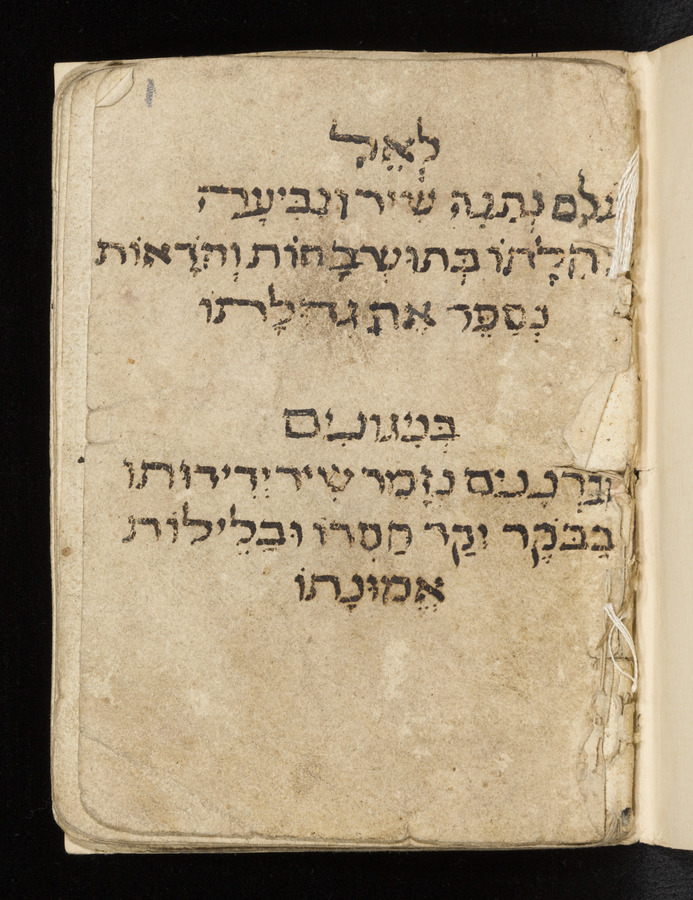 לְאֵל
נִתְּנָה שִׁיר וּנְבִיעָה
בְּתוּשְׁבָּחוֹת וְהֹדָאוֹת
נְסַפֵּר אֶת גְּדֻלָּתוֹ
בְּנִגּוּנִים
וּבְרְנָנִים נְזַמֵּר שִׁיר יְדִידוּתוֹ
בַּבֹּקֶר יְקַר חַסְדוֹ וּבַלֵּילוֹת
אֱמוּנָתוֹ